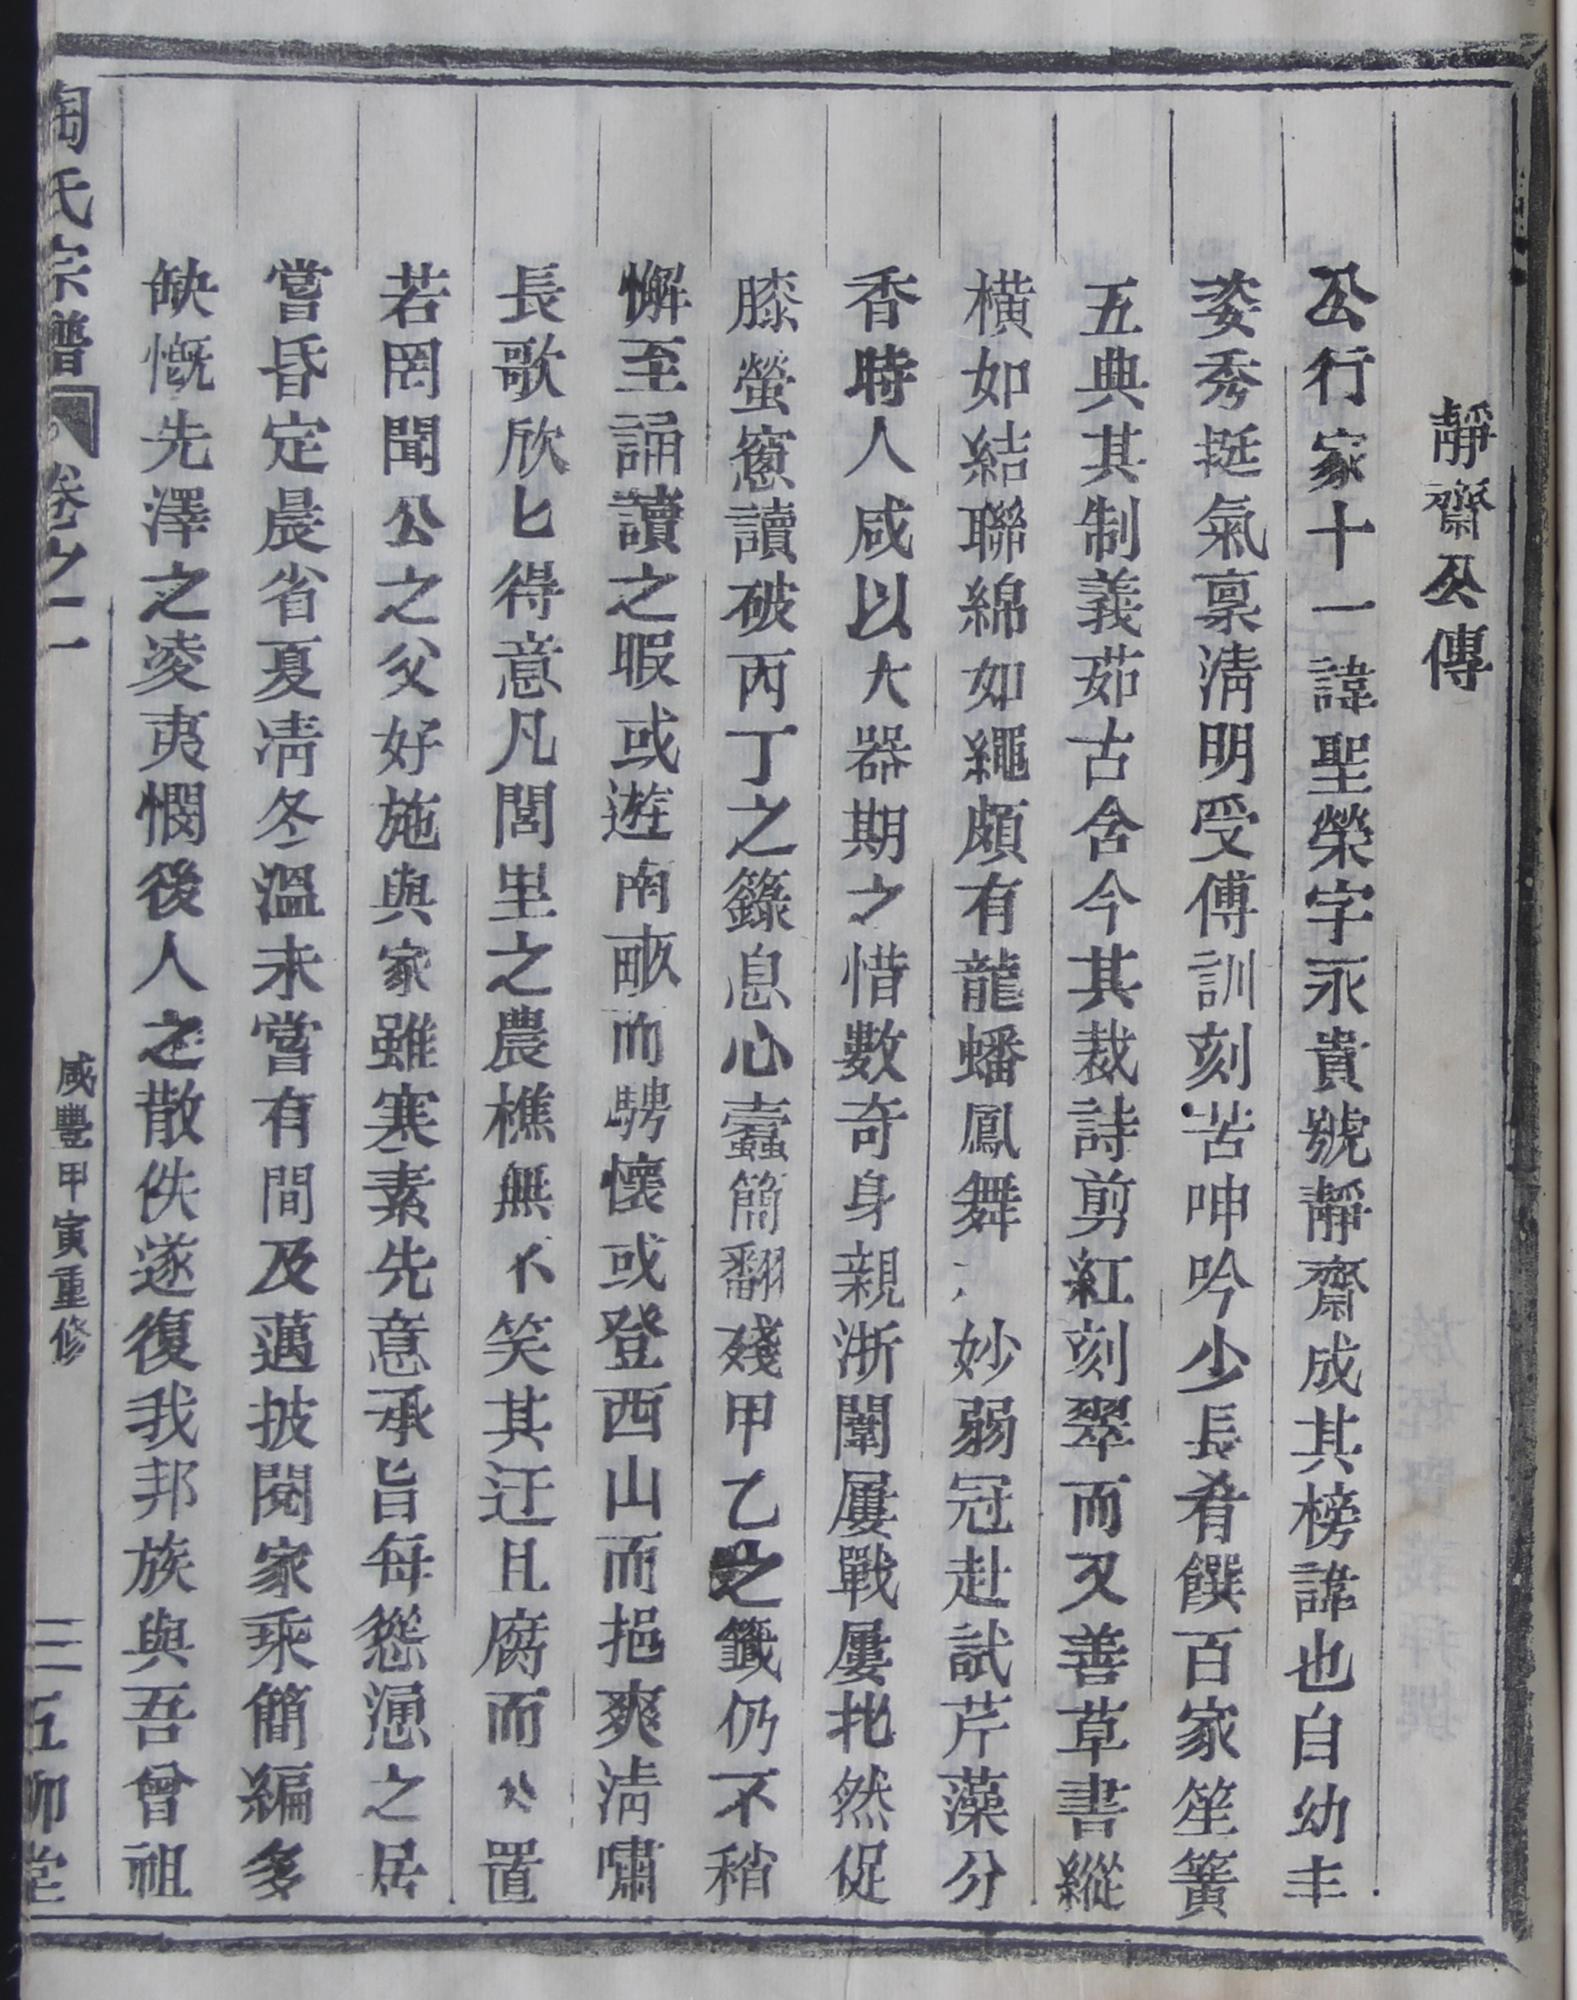 靜齋公傳
公行家十一諱聖榮字永貴號靜齋成其榜諱也自幼丰
姿秀挺氣稟淸明受傅訓刻苦呻吟少長肴饌百家笙簧
五典其制義茹古含今其裁詩剪紅刻翠而又善草書縱
橫如結聯綿如繩頗有龍蟠鳳舞之妙弱冠赴試芹藻分
香時人咸以大器期之惜數奇身親浙闈屢戰屢北然促
膝螢窓讀破丙丁之籙息心蠹簡翻殘甲乙之籤仍不稍
懈至誦讀之暇或遊南畝而騁懷或登西山而挹爽淸嘯
長歌欣匕得意凡閭里之農樵無不笑其迂且腐而公置
若罔聞公之父好施與家雖寒素先意承旨每慫慂之居
嘗昏定晨省夏凊冬溫未嘗有間及邁披閱家乘簡編多
缺慨先澤之凌夷憫後人之散佚遂復我邦族與吾曾祖
陶氏宗譜 卷之一 咸豐甲寅重修 三 五柳堂